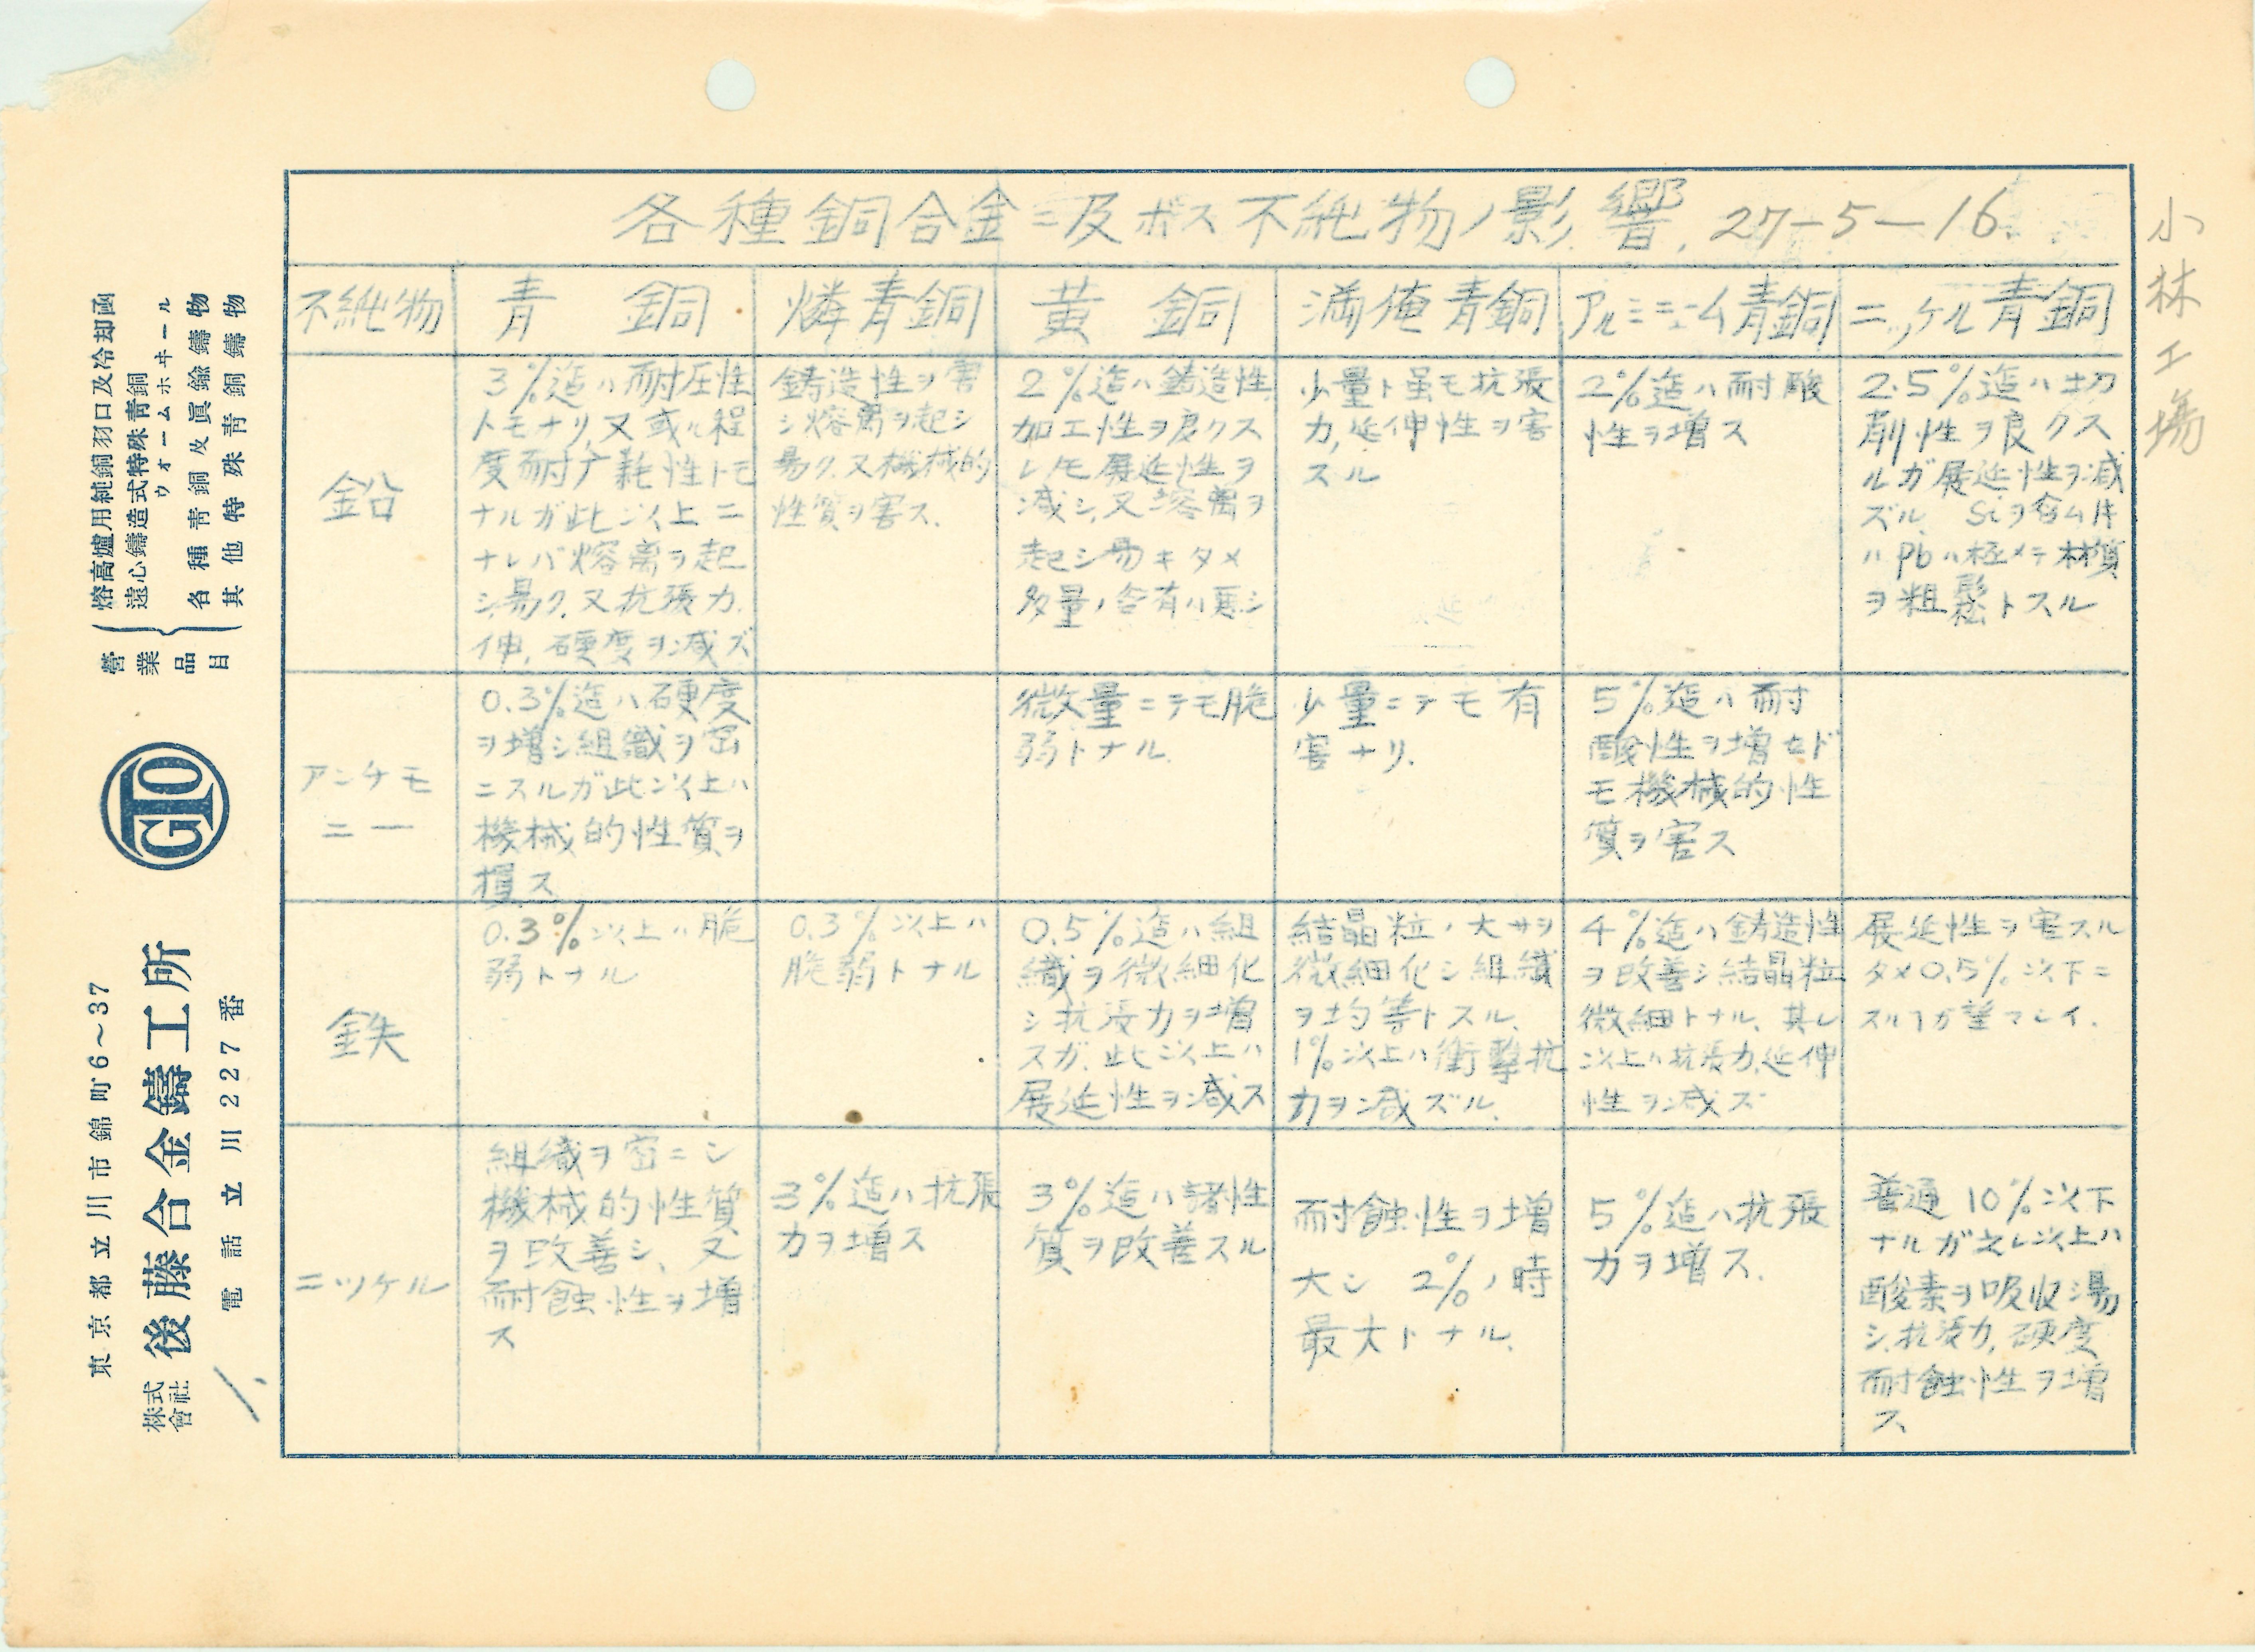 各種銅合金ニ及ボス不純物ノ影響. 27-5-16.
小林工場
不純物
青 銅
燐青銅
黄 銅
満俺青銅
アルミニューム青銅
ニッケル青銅
鉛
3%迄ハ耐圧性
トモナリ,又或ル程
度耐ㄏ耗性トモ
ナルガ此以上ニ
ナレバ熔離ヲ起
シ易ク.又抗張力.
伸,硬度ヲ減ズ
鋳造性ヲ害
シ熔离ヲ起シ
易ク.又機械的
性質ヲ害ス.
2%迄ハ鋳造性
加工性ヲ良クス
レ𪜈展延性ヲ
減シ,又熔离ヲ
起シ易キタメ
多量ノ含有ハ悪シ
少量ト虽モ抗張
力,延伸性ヲ害
スル
2%迄ハ耐酸
性ヲ増ス
2.5%迄ハ切
削性ヲ良クス
ルガ展延性ヲ減
ズル. Siヲ含ム
ハPbハ極メテ材質
ヲ粗鬆トスル
アンチモ
ニー
0.3%迄ハ硬度
ヲ増シ組織ヲ密
ニスルガ此以上ハ
機械的性質ヲ
損ス
微量ニテモ脆
弱トナル.
少量ニテモ有
害ナリ.
5%迄ハ耐
酸性ヲ増セド
モ機械的性
質ヲ害ス
鉄
0.3%以上ハ脆
弱トナル
0.3%以上ハ
脆弱トナル
0.5%迄ハ組
織ヲ微細化
シ抗張力ヲ増
スガ.此以上ハ
展延性ヲ減ス
結晶粒ノ大サヲ
微細化シ組織
ヲ均等トスル.
1%以上ハ衝撃抗
力ヲ減ズル.
4%迄ハ鋳造性
ヲ改善シ結晶粒
微細トナル.其レ
以上ハ抗張力,延伸
性ヲ減ズ
展延性ヲ害スル
タメ0.5%以下ニ
スルヿガ望マレイ.
ニツケル
組織ヲ密ニシ
機械的性質
ヲ改善シ、又
耐蝕性ヲ増
ス
3%迄ハ抗張
力ヲ増ス
3%迄ハ諸性
質ヲ改善スル
耐蝕性ヲ増
大シ 2%ノ時
最大トナル.
5%迄ハ抗張
力ヲ増ス.
普通10%以下
ナルガ之レ以上ハ
酸素ヲ吸収シ易
シ.抗張力,硬度
耐蝕性ヲ増
ス
營業品目
熔高爐用純銅羽口及冷却函
遠心鑄造式特殊青銅
ウォームホヰール
各種青銅及眞鍮鑄物
其他特殊青銅鑄物
GTO
東京都立川市錦町6～37
株式會社 後藤合金鑄工所
電話立川227番
1.